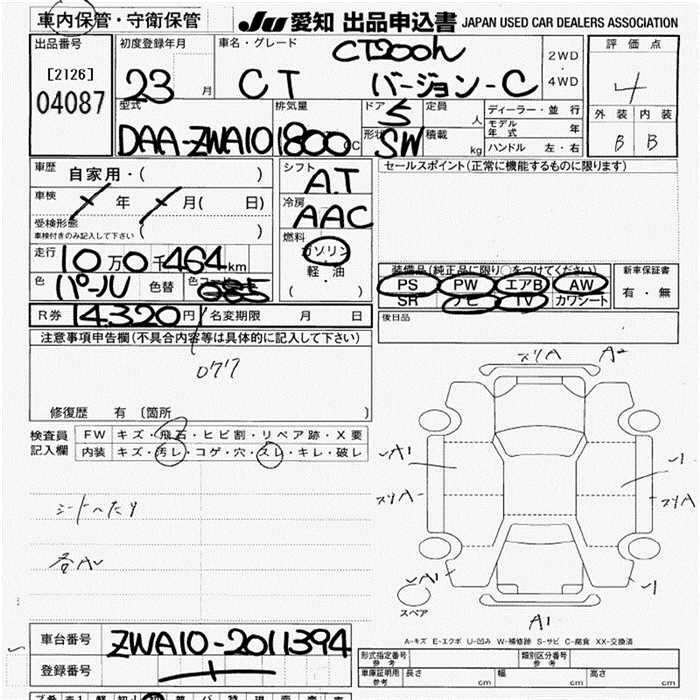 車内保管・守衛保管
JU 愛知 出品申込書 JAPAN USED CAR DEALERS ASSOCIATION
出品番号
[2126]
04087
初度登録年月
23 月
車名・グレード
CT200h
CT バージョン-C
2WD
・
4WD
評価点
4
外装 内装
B B
型式
DAA-ZWA10
排気量
1800 CC
ドア 5
形状 SW
定員 人
積載 kg
ディーラー・並行
モデル年式 年
ハンドル 左・右
車歴 自家用・( )
車検 年 月( 日)
受検形態
車検付きのみ記入して下さい ( )
走行
10万0千464km
色 パール 色替 色コード
シフト
A.T
冷房
AAC
燃料
ガソリン
軽・油
( ・ )
セールスポイント(正常に機能するものに限ります)
装備品(純正品に限り○をつけてください)
PS PW エアB AW
SR ナビ TV カワシート
新車保証書
有・無
後日品
R券 14,320円 名変期限 月 日
注意事項申告欄(不具合内容等は具体的に記入して下さい)
077
修復歴 有 〔箇所 〕
検査員
記入欄
FW キズ・飛石・ヒビ割・リペア跡・X要
内装 キズ・汚レ・コゲ・穴・スレ・キレ・破レ
シートへたり
スリA A2
A1
スリA
スリA
A1
A1
スペア
A-キズ E-エクボ U-凹み W-補修跡 S-サビ C-腐食 XX-交換済
車台番号 ZWA10-2011394
登録番号
形式指定番号
参考
類別区分番号
参考
車庫証明用
参考
長さ cm 幅 cm 高さ cm